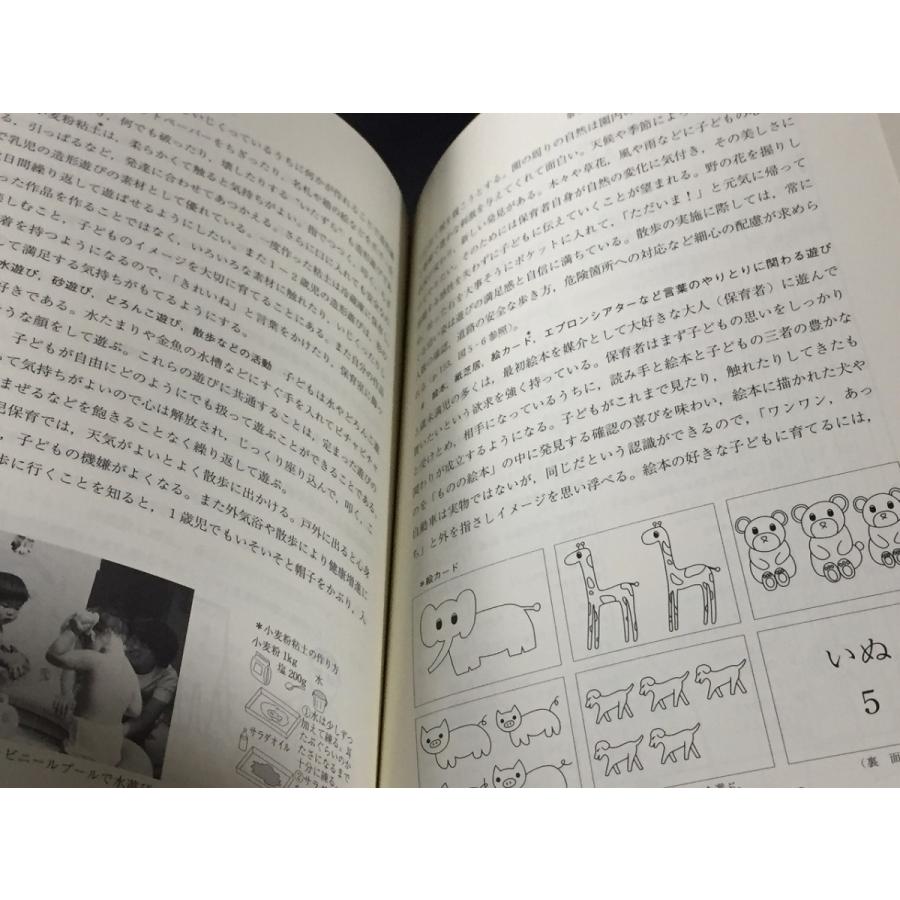 トペーパーをちぎったり、名札や箱の絵など
小麦粉粘土は、柔らかくて触ると気持ちがよい。指でつつく、
る、引っぱるなど、発達に合わせてあつかえる。さらに口に入れても
で乳児の造形遊びの素材として優れている。一度作った粘土は冷蔵庫
日間繰り返して遊ばせるようにしたい。また1〜2歳児の造形遊びは、
った作品を作ることではなく、いろいろな素材に触れたり、いじくったり
しむこと、子どものイメージを大切に育てることにある。また自分の作品
着を持つようになるので、「きれいね」と言葉をかけたり、保育室に飾っ
して満足する気持ちがもてるようにする。
水遊び、砂遊び、どろんこ遊び、散歩などの活動 子どもは水やどろんこ遊
好きである。水たまりや金魚の水槽などにすぐ手を入れてピチャピチャ
うな顔をして遊ぶ。これらの遊びに共通することは、定まった遊びの
子どもが自由にどのようにでも扱って遊ぶことができることである。
って気持ちがよいので心は解放され、じっくり座り込んで、叩く、こ
まぜるなどを飽きることなく繰り返して遊ぶ。
児保育では、天気がよいとよく散歩に出かける。戸外に出ると心身
、子どもの機嫌がよくなる。また外気浴や散歩により健康増進に
歩に行くことを知ると、1歳児でもいそいそと帽子をかぶり、入
ビニールプールで水遊び
*小麦粉粘土の作り方
小麦粉1kg
塩200g
水
サラダオイル
①水は少しずつ
加えて練る。耳
たぶぐらいのか
たさになるまで
十分に練る
②サラ
する。園の周りの自然は園内
な刺激を与えてくれて面白い。天候や季節によ
新しい発見がある。木々や草花、風や雨などに子どもの
そのためには保育者自身が自然の変化に気付き、その美しさに
を失わずに子どもに伝えていくことが望まれる。野の花を握りし
を大事そうにポケットに入れて、「ただいま！」と元気に帰って
は遊びの満足感と自信に満ちている。散歩の実施に際しては、常に
道路の安全な歩き方、危険箇所への対応など細心の配慮が求めら
図5-6参照)。
絵本、紙芝居、絵カード、エプロンシアターなど言葉のやりとりに関わる遊び
歳未満児の多くは、最初絵本を媒介として大好きな大人（保育者）に遊んで
いたいという欲求を強く持っている。保育者はまず子どもの思いをしっかり
と受けとめ、相手になっているうちに、読み手と絵本と子どもの三者の豊かな
関わりが成立するようになる。子どもがこれまで見たり、触れたりしてきたも
のを「ものの絵本」の中に発見する確認の喜びを味わい、絵本に描かれた犬や
自動車は実物ではないが、同じだという認識ができるので、「ワンワン、あっ
ち」と外を指さしイメージを思い浮べる。絵本の好きな子どもに育てるには、
*絵カード
いぬ
5
（裏 面